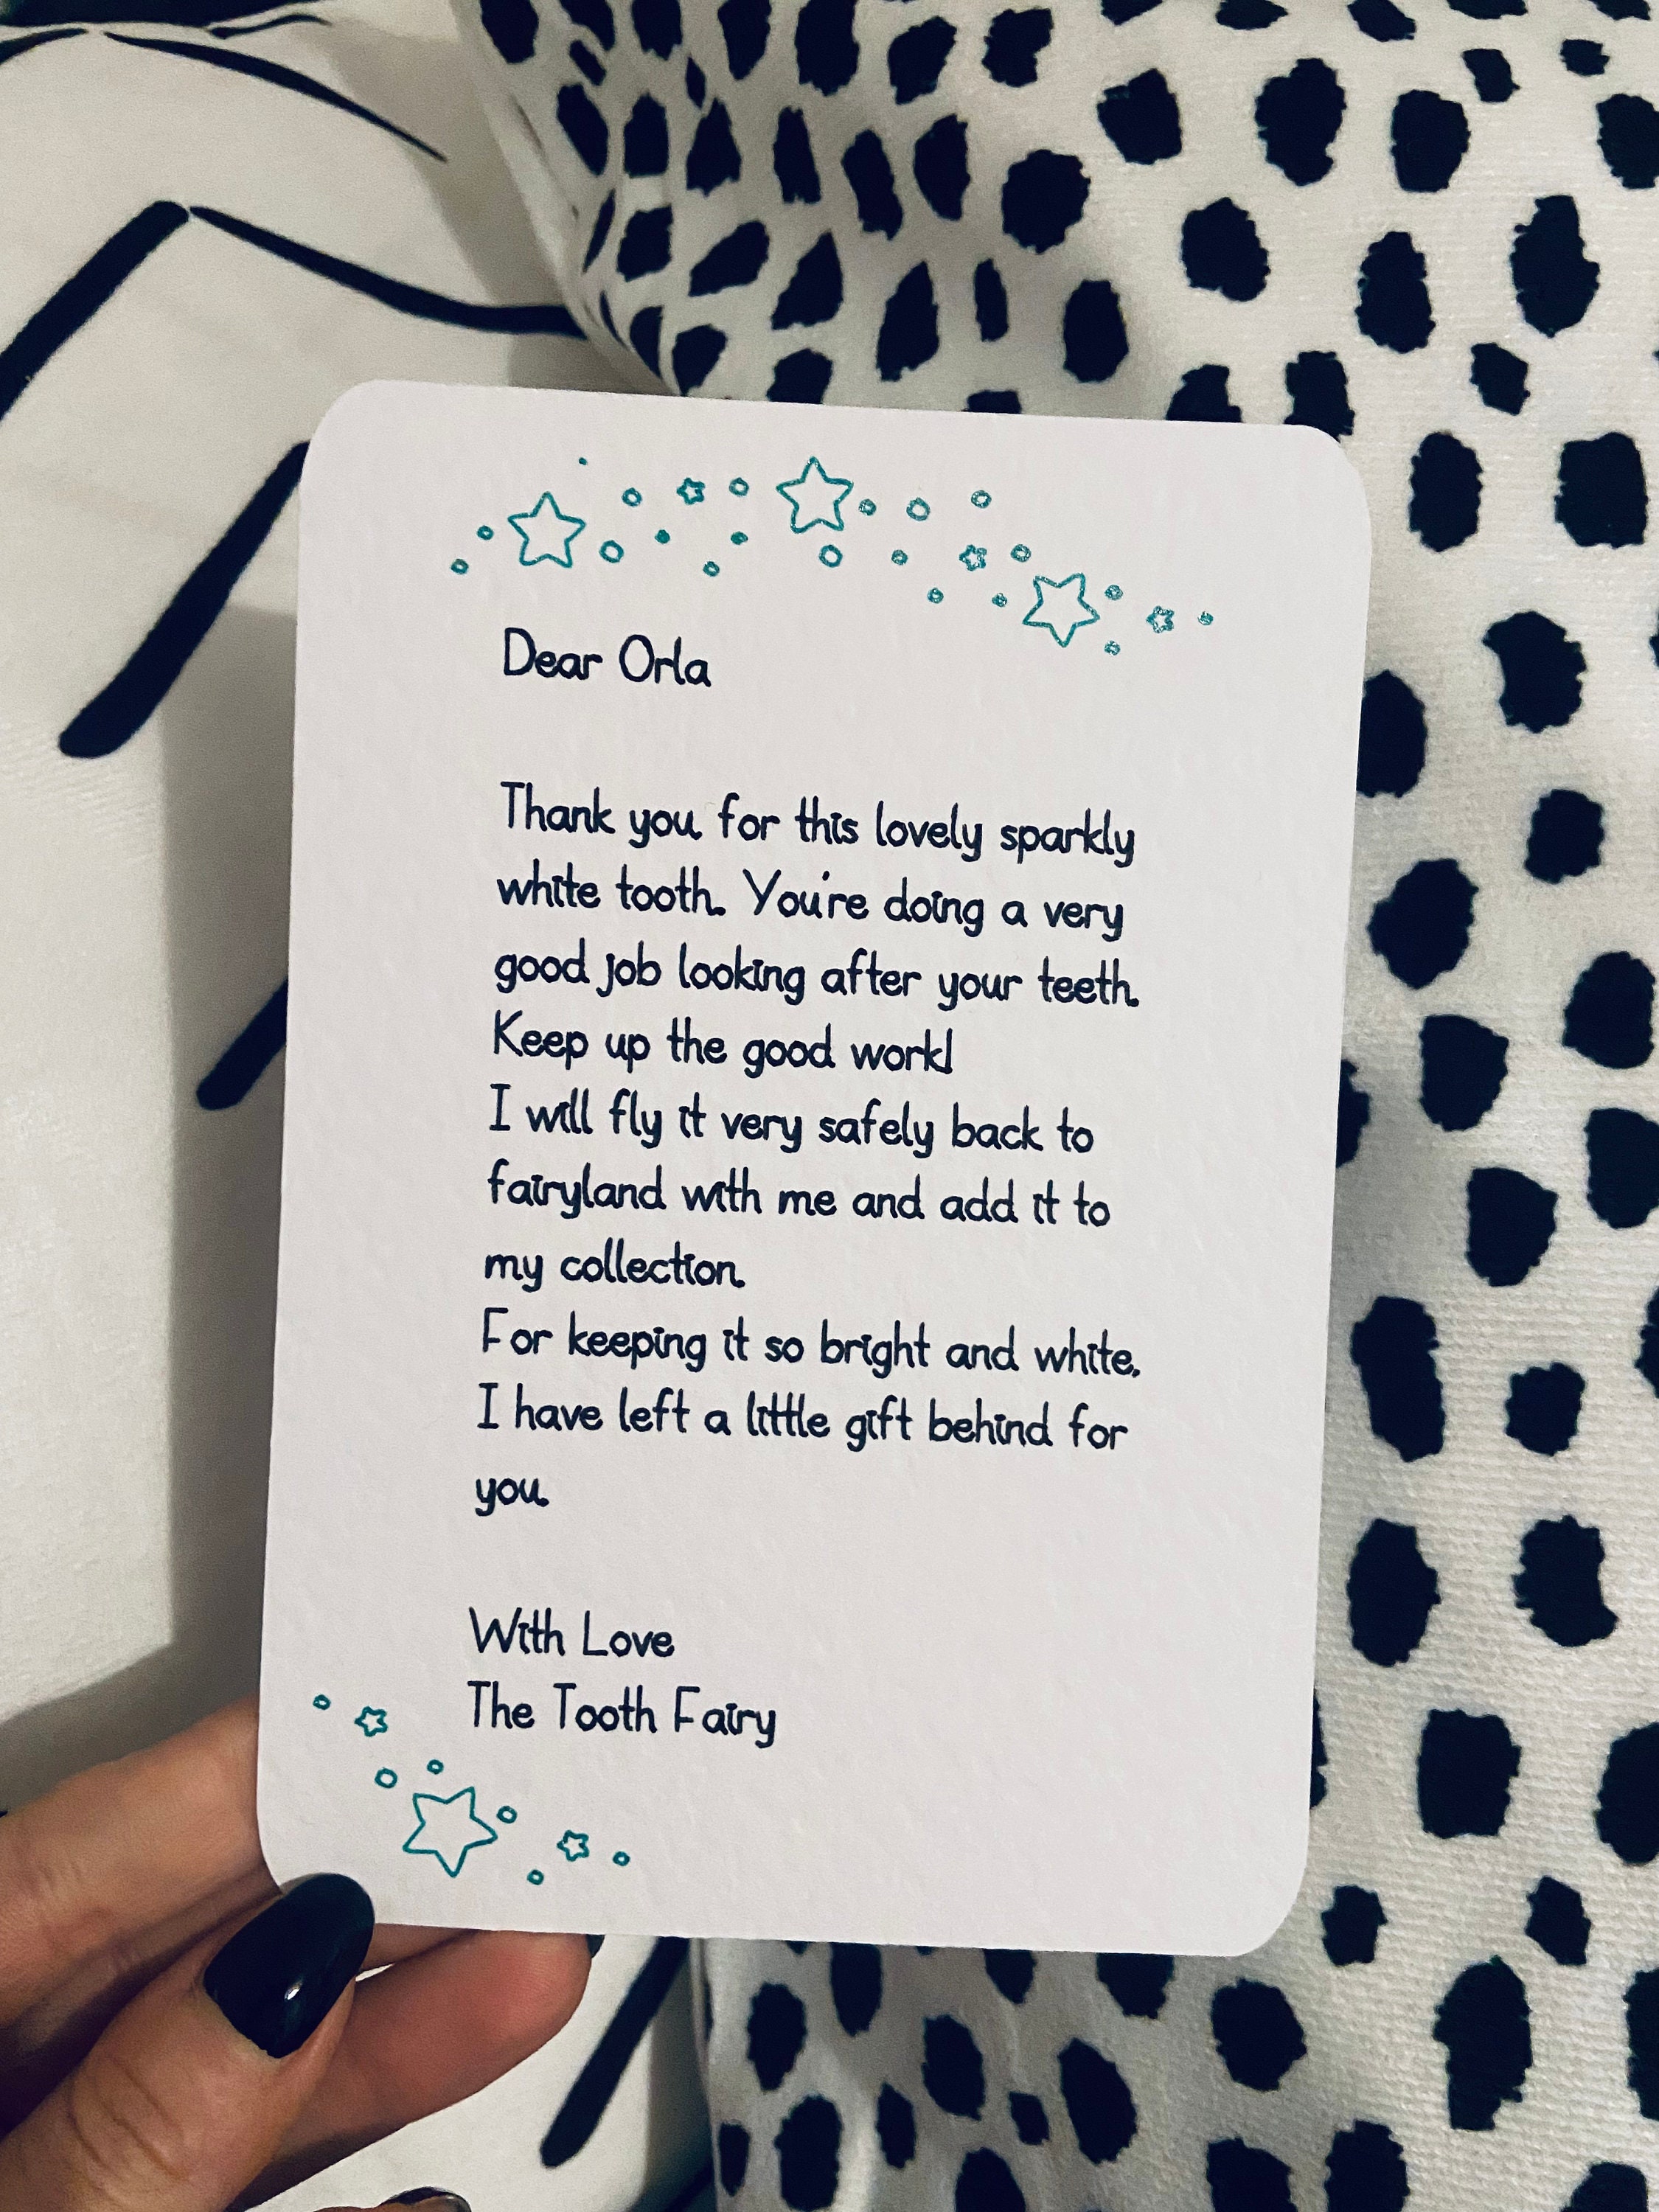 Dear Orla
Thank you for this lovely sparkly
white tooth. You're doing a very
good job looking after your teeth.
Keep up the good work!
I will fly it very safely back to
fairyland with me and add it to
my collection.
For keeping it so bright and white,
I have left a little gift behind for
you.
With Love
The Tooth Fairy